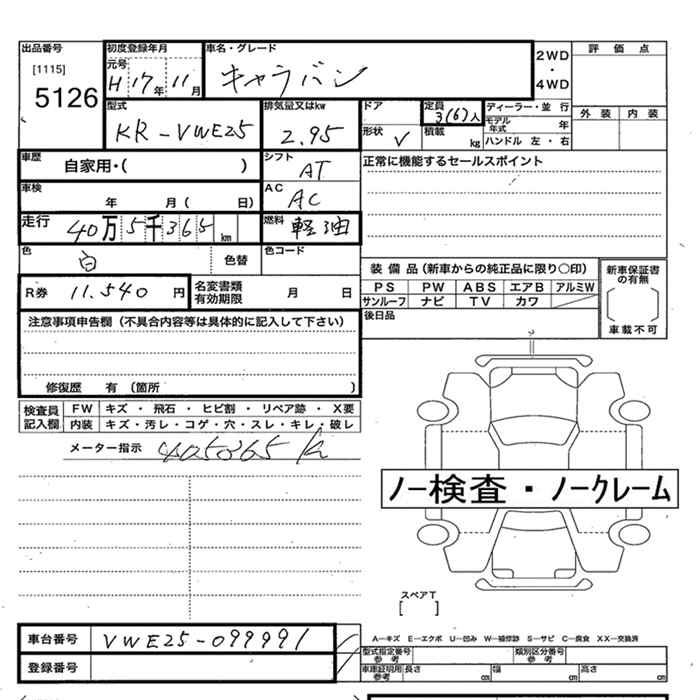 出品番号 初度登録年月 車名・グレード 2WD・4WD 評価点
[1115] 元号
5126 H17年11月 キャラバン 外装 内装
型式 排気量又はkw ドア 定員 3(6)人 ディーラー・並行
KR-VWE25 2.95 形状 V 積載 kg モデル年式 年
ハンドル 左・右
車歴 自家用・( ) シフト AT 正常に機能するセールスポイント
車検 年 月( 日) AC AC
走行 40万5千365km 燃料 軽油
色 白 色替 色コード
装備品(新車からの純正品に限り○印) 新車保証書の有無
R券 11.540円 名変書類有効期限 月 日 PS PW ABS エアB アルミW
サンルーフ ナビ TV カワ
注意事項申告欄(不具合内容等は具体的に記入して下さい) 後日品 車載不可
修復歴 有 (箇所 )
検査員記入欄 FW キズ・飛石・ヒビ割・リペア跡・X要
内装 キズ・汚レ・コゲ・穴・スレ・キレ・破レ
メーター指示 405365k
ノー検査・ノークレーム
スペアT
[ ]
車台番号 VWE25-099991 A―キズ E―エクボ U―凹み W―補修跡 S―サビ C―腐食 XX―交換済
登録番号 型式指定番号 参考 類別区分番号 参考
車庫証明用 参考 長さ cm 幅 cm 高さ cm